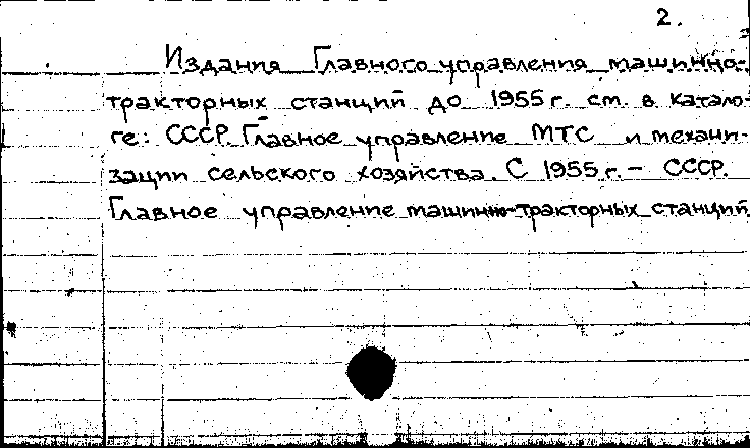 2.
Издания Главного управления машинно-
тракторных станций до 1955 г. см. в катало-
ге: СССР. Главное управление МТС и механи-
зации сельского хозяйства. С 1955 г. – СССР.
Главное управление машинно-тракторных станций